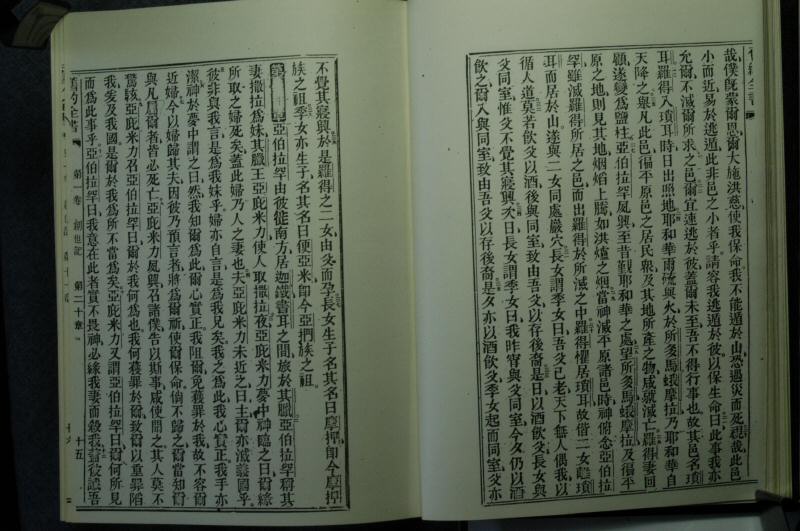 哉僕既蒙爾恩爾大施洪慈使我保命我不能遁於山恐遇災而死視哉此邑
小而近易於逃遁此非邑之小者乎請容我逃遁於彼以保生命曰此事我亦
允爾不滅爾所求之邑爾宜速逃於彼蓋爾未至吾不得行事也故其邑名瑣
耳羅得入瑣耳時日出照地耶和華雨硫與火於所多馬蛾摩拉乃耶和華自
天降之與凡此邑徧平原邑之居民與及其地所產之物咸就滅亡羅得妻回
顧遂變為鹽柱亞伯拉罕夙興至昔覲耶和華之處望所多馬蛾摩拉及徧平
原之地則見其地烟焰上騰如洪爐之烟當神滅平原諸邑時神俯念亞伯拉
罕雖滅羅得所居之邑而出羅得於所滅之中羅得懼居瑣耳故偕二女離瑣
耳而居於山遂與二女同處巖穴長女謂季女曰吾父已老天下無人偶我以
循人道莫若飲父以酒後與同室致由吾父以存後裔是日以酒飲父長女與
父同室惟父不覺其寢興次日長女謂季女曰我昨宵與父同室今夕仍以酒
飲之爾入與同室致由吾父以存後裔是夕亦以酒飲父季女起而同室父亦
不覺其寢興於是羅得之二女由父而孕長女生子名其名曰摩押即今摩押
族之祖季女亦生子名其名曰便亞米即今亞捫族之祖
亞伯拉罕由彼徙南方居迦鐵書耳之間旅於其臘亞伯拉罕稱其
妻撒拉為妹其臘王亞庇米力使人取撒拉夜亞庇米力夢中神臨之曰爾緣
所取之婦死矣蓋此婦乃人之妻也夫亞庇米力未近之曰主爾亦滅義國乎
彼非與我言是為我妹乎婦亦自言是為我兄矣我之為此我心實正我手亦
潔神於夢中謂之曰然我知爾為此爾心實正我阻爾免獲罪於我故不容爾
近婦今以婦歸其夫因彼乃預言者將為爾祈使爾保命倘不歸之爾當知爾
與凡屬爾者皆必死亡亞庇米力夙興召諸僕告以斯事咸使聞之其人莫不
驚駭亞庇米力召亞伯拉罕曰爾於我何為也我何獲罪於爾致爾以重罪陷
我爰及我國是爾於我為所不當為矣亞庇米力又謂亞伯拉罕曰爾何所見
而為此事乎亞伯拉罕曰我意在此者實不畏神必緣我妻而殺我
舊約全書 第一卷 創世記 第二十章 十五